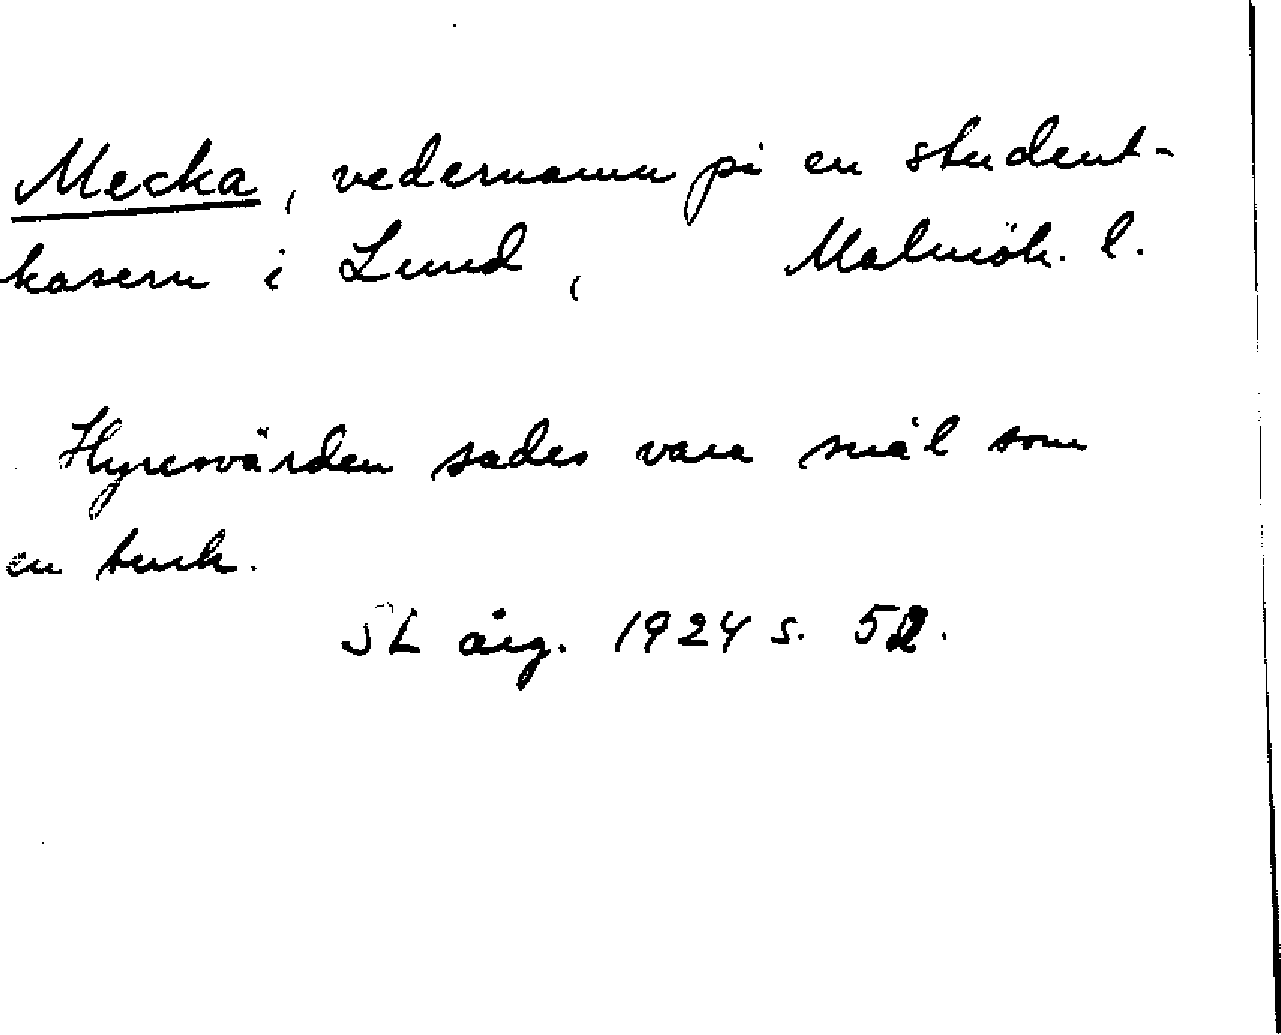 Mecka, vedernamn på en student-
kasern i Lund, Malmöh. l.
Hyresvärden sades vara snål som
en turk.
SL årg. 1924 s. 52.